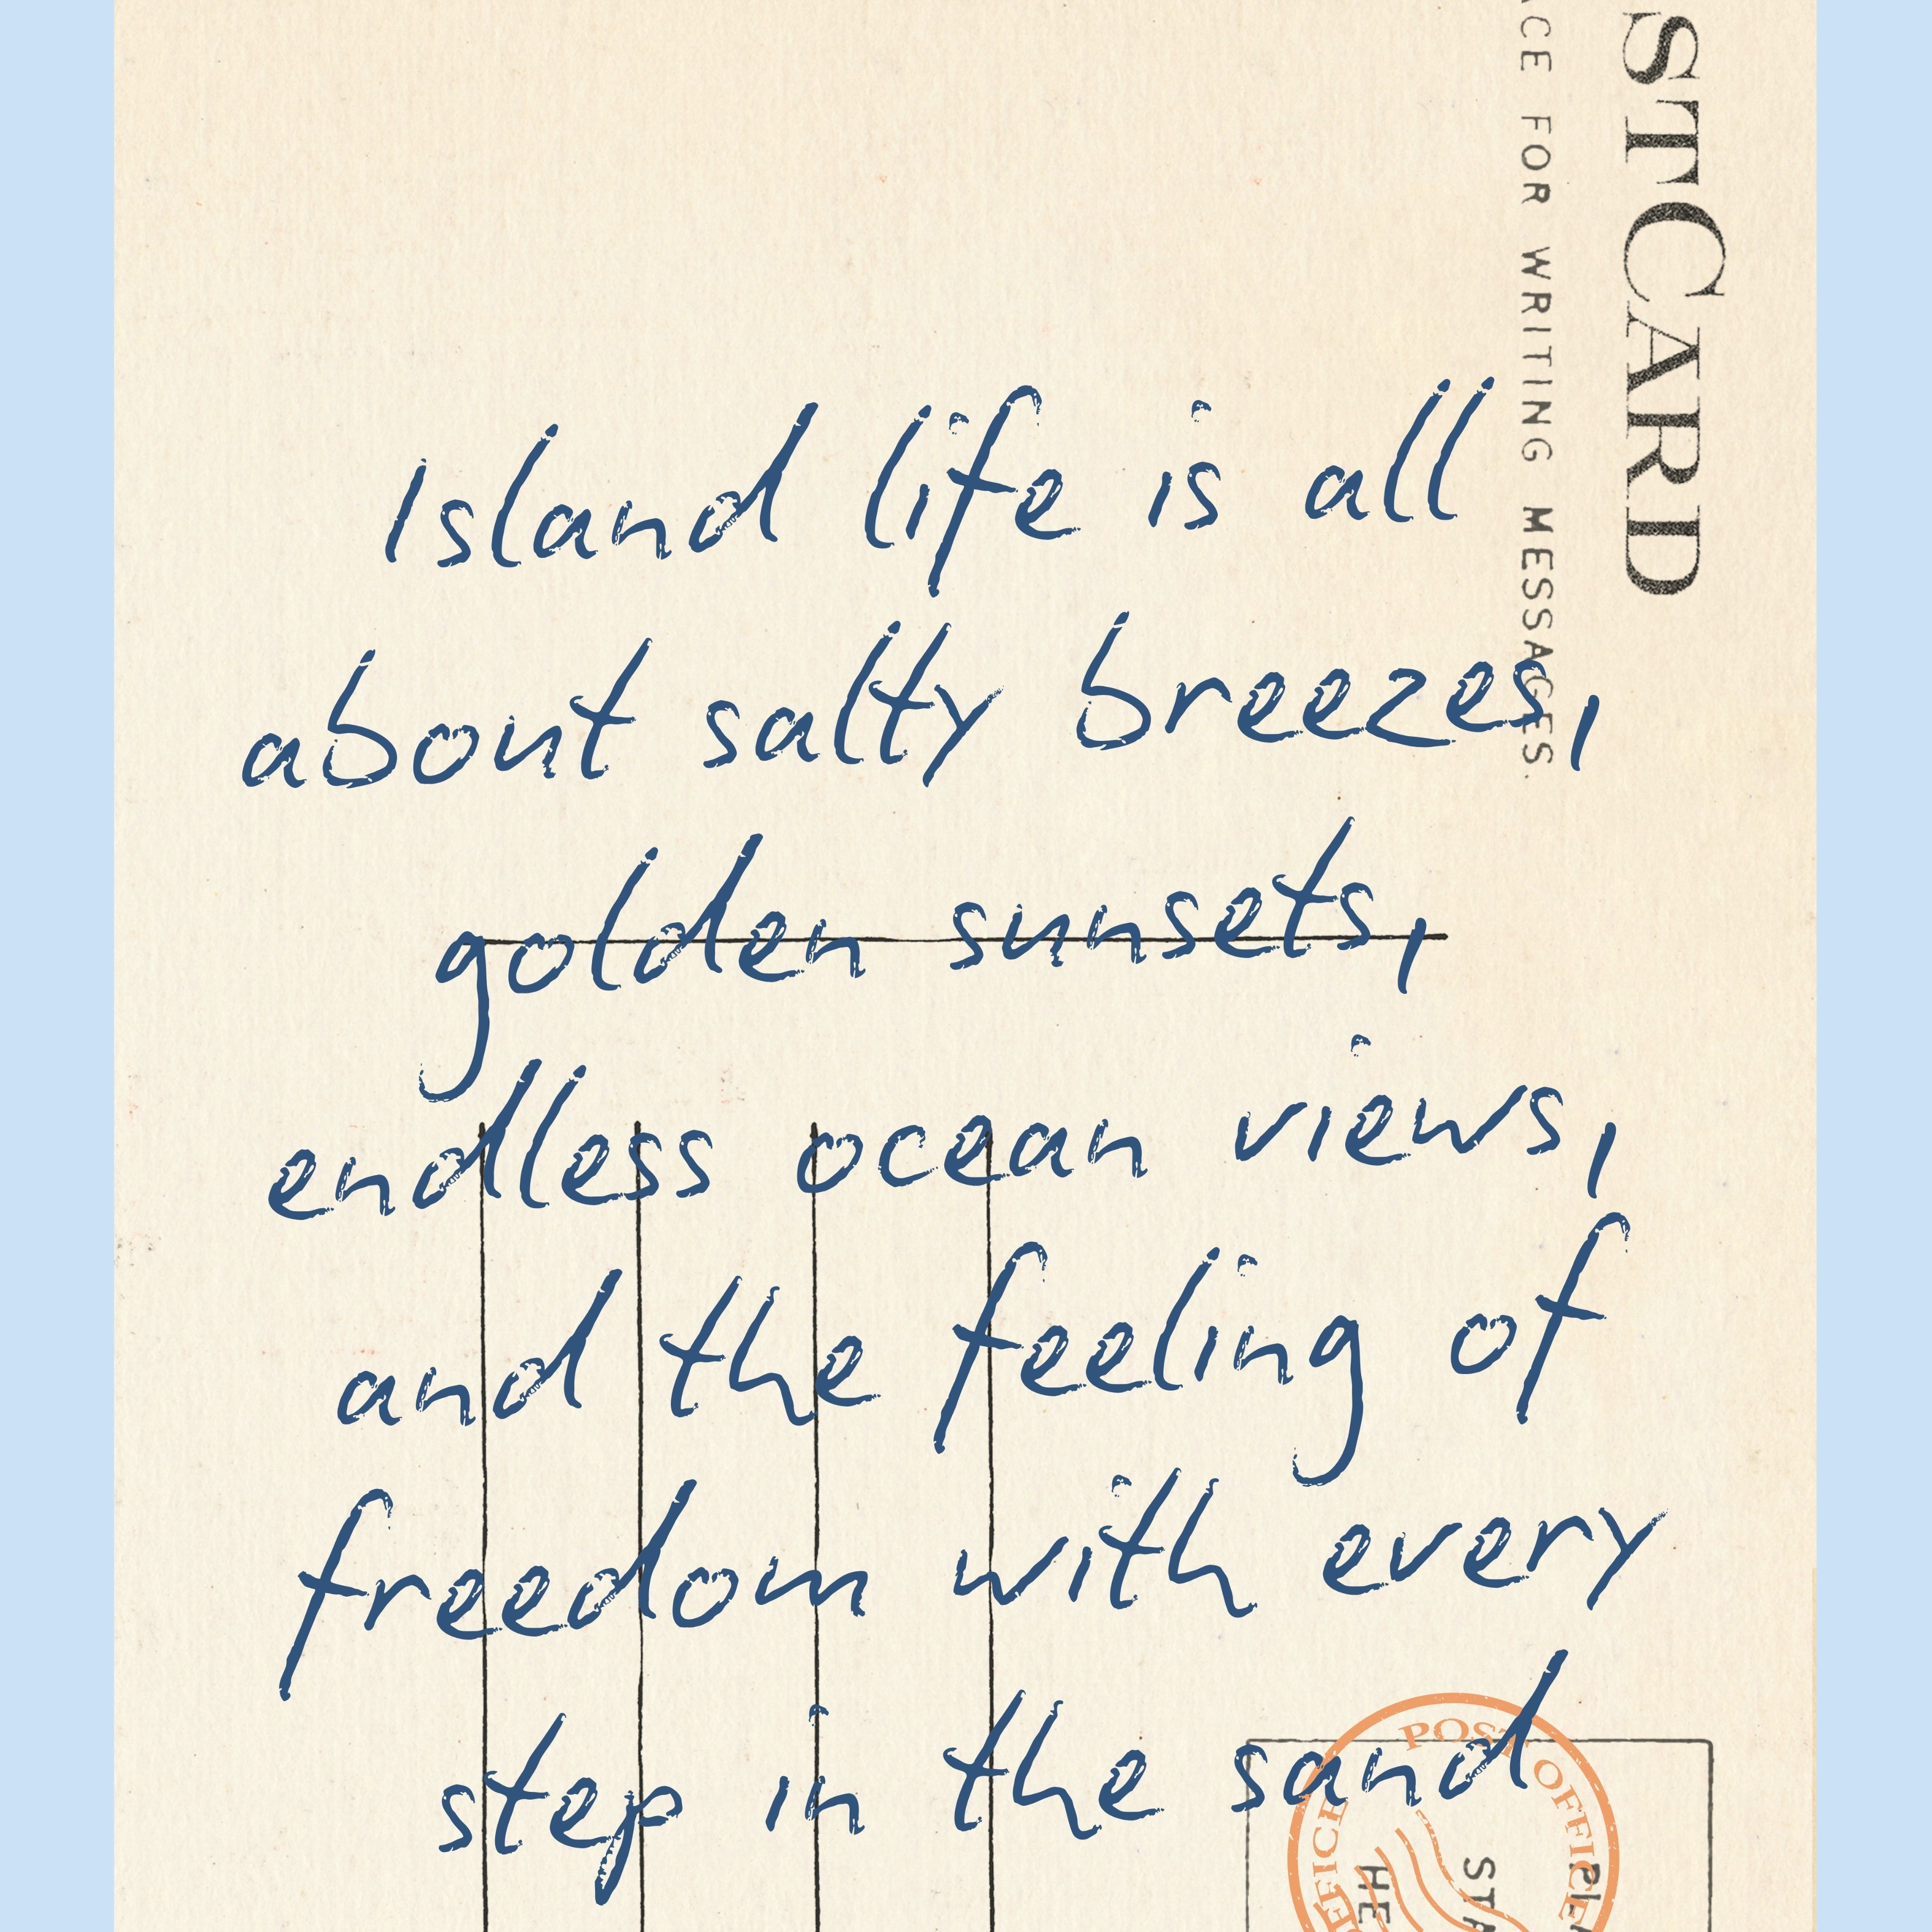 STCARD
ACE FOR WRITING MESSAGES.
Island life is all
about salty breezes,
golden sunsets,
endless ocean views,
and the feeling of
freedom with every
step in the sand
POST OFFICE
OFFICE
PLA
STA
HE